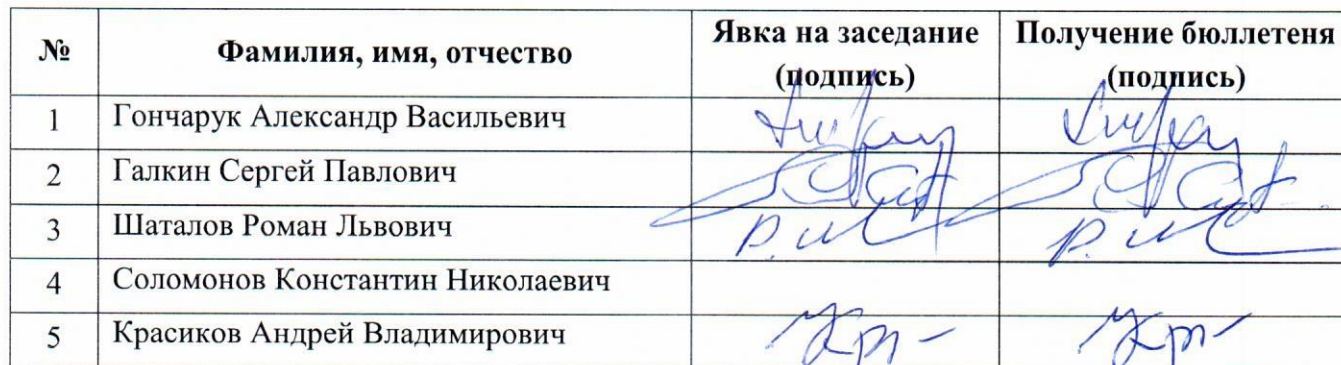 № Фамилия, имя, отчество Явка на заседание (подпись) Получение бюллетеня (подпись)
1 Гончарук Александр Васильевич
2 Галкин Сергей Павлович
3 Шаталов Роман Львович
4 Соломонов Константин Николаевич
5 Красиков Андрей Владимирович